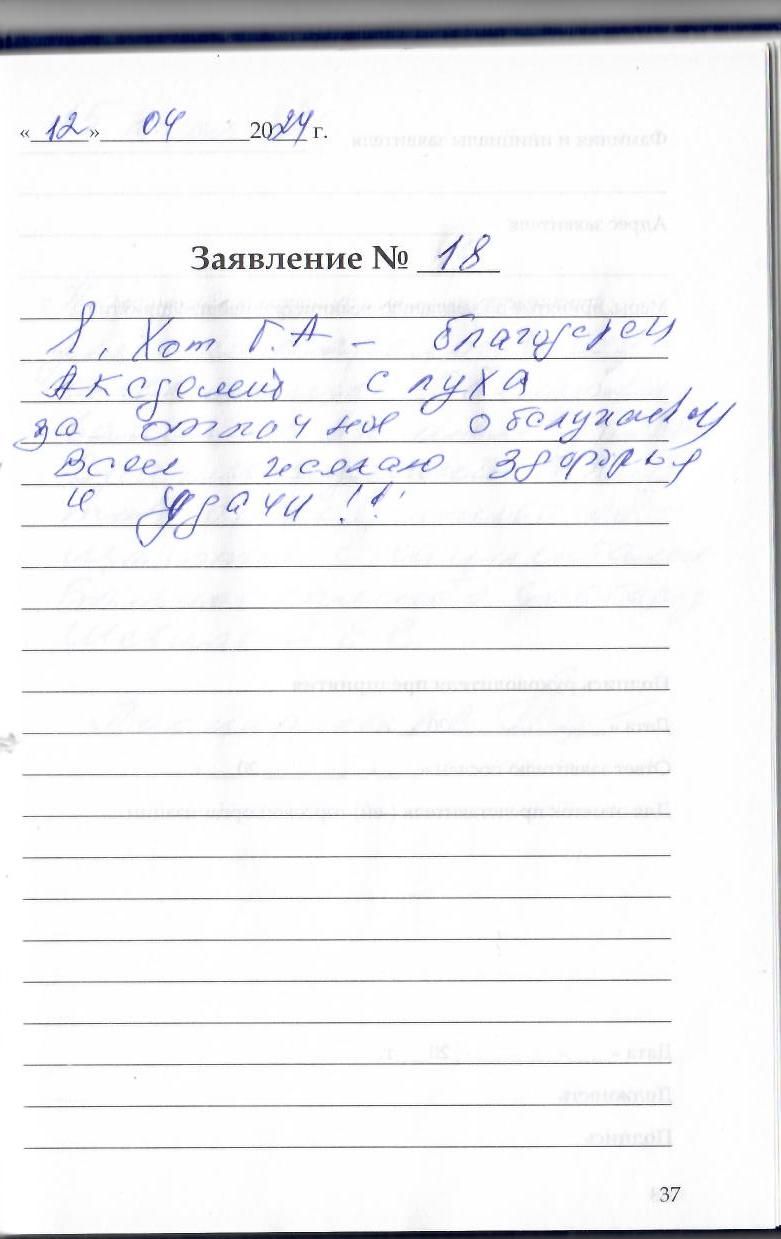 «12» 04 2024 г.
Заявление № 18
Я, Хот Г.А – благодарен
Академий слуха
за отличное обслуживан
Всем желаю здоровья
и удачи!!
37